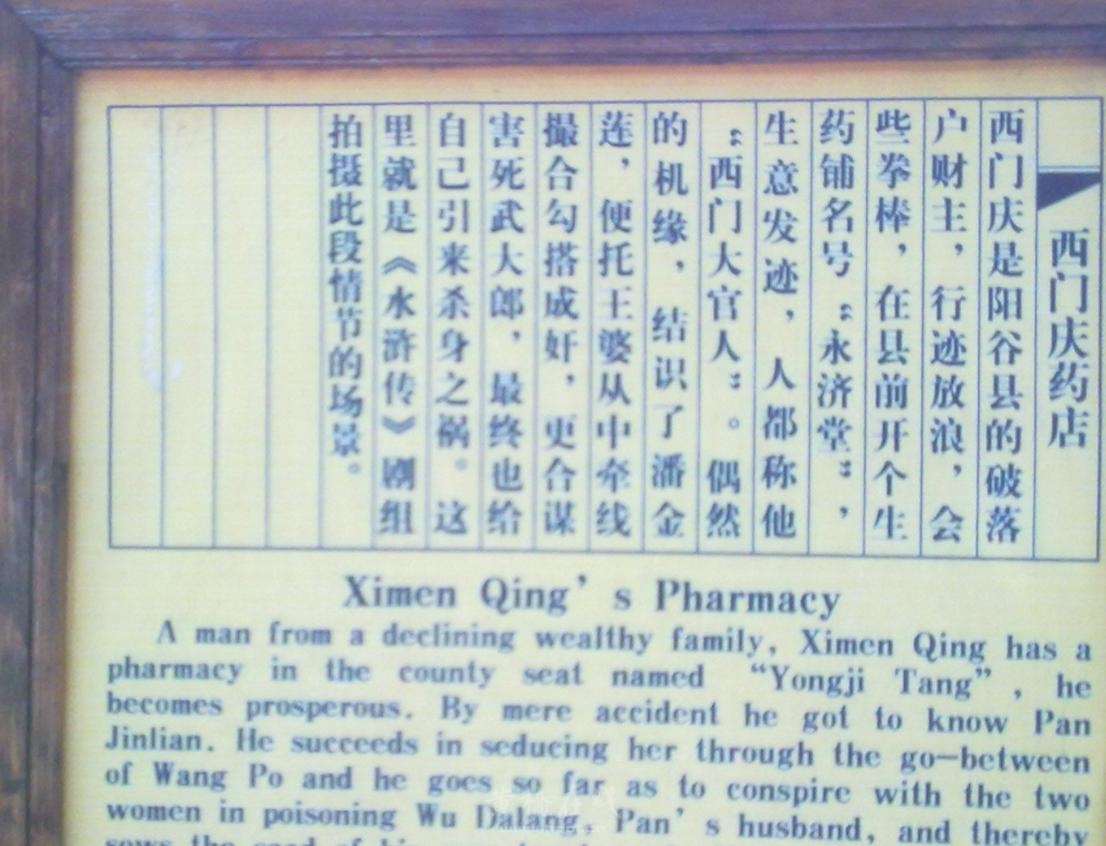 西门庆药店
西门庆是阳谷县的破落
户财主，行迹放浪，会
些拳棒，在县前开个生
药铺名号“永济堂”，
生意发迹，人都称他
“西门大官人”。偶然
的机缘，结识了潘金
莲，便托王婆从中牵线
撮合勾搭成奸，更合谋
害死武大郎，最终也给
自己引来杀身之祸。这
里就是《水浒传》剧组
拍摄此段情节的场景。
Ximen Qing’s Pharmacy
A man from a declining wealthy family, Ximen Qing has a
pharmacy in the county seat named “Yongji Tang”, he
becomes prosperous. By mere accident he got to know Pan
Jinlian. He succeeds in seducing her through the go-between
of Wang Po and he goes so far as to conspire with the two
women in poisoning Wu Dalang, Pan’s husband, and thereby
sows the seed of his